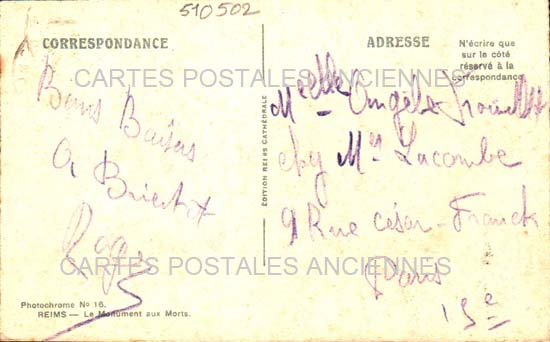 510502
CORRESPONDANCE
Bons Baisers
A Bientot
Roger
Photochrome No 16.
REIMS — Le Monument aux Morts.
EDITION REIMS CATHÉDRALE
ADRESSE
N'écrire que
sur le côté
réservé à la
correspondance
Melle Angèle
chez Mr Lacombe
9 Rue césar-Franck
Paris
15e
CARTES POSTALES ANCIENNES
CARTES POSTALES ANCIENNES